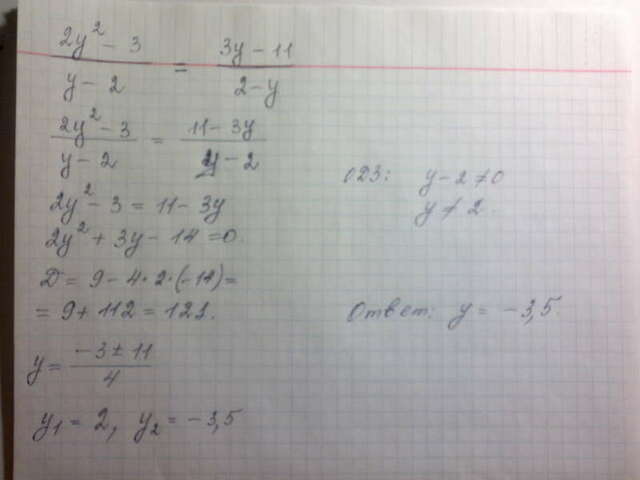 (2y² - 3)/(y - 2) = (3y - 11)/(2 - y)
(2y² - 3)/(y - 2) = (11 - 3y)/(y - 2)
2y² - 3 = 11 - 3y
2y² + 3y - 14 = 0.
D = 9 - 4·2·(-14) =
= 9 + 112 = 121.
y = (-3 ± 11)/4
y₁ = 2, y₂ = -3,5
ОДЗ: y - 2 ≠ 0
y ≠ 2.
Ответ: y = -3,5.